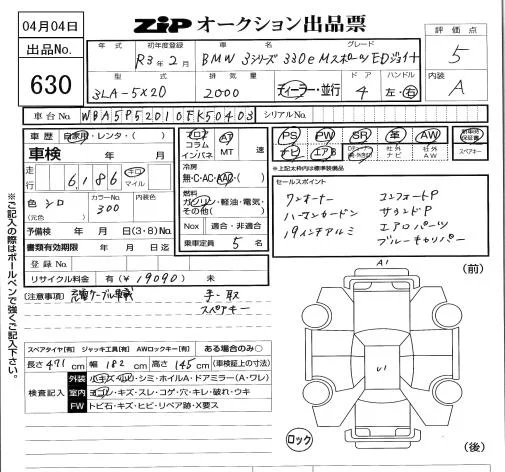 04月04日
ZiP オークション出品票
出品No.
630
年式 初年度登録 車名 グレード
R3年2月 BMW 3シリーズ 330e Mスポーツ EDジョイ+
型式 排気量 ドア ハンドル
3LA-5X20 2000 ディーラー・並行 4 左・右
評価点
5
内装
A
車台No. WBA5P52010FK50403 シリアルNo.
車歴 自家用・レンタ・( )
車検 年 月
走行 6,186 キロ マイル
色 シロ (元色) カラーNo. 300 内装色
予備検 年 月 日(3・8)No.
書類有効期限 年 月 日迄
登録No.
リサイクル料金 有(¥19090) 未
フロア コラム インパネ
AT MT 速
冷房
無・C・AC・AAC・( )
燃料
ガソリン・軽油・電気・その他( )
Nox 適合・非適合
乗車定員 5 名
PS PW SR 革 AW 新車時保証書
ナビ エアB 社外ナビ 社外AW スペアキー
*上記太枠内は標準装備品
セールスポイント
ワンオーナー コンフォートP
ハーマンカードン サウンドP
19インチアルミ エアロパーツ
ブルーキャリパー
[注意事項] 充電ケーブル車載 手・取
スペアキー
スペアタイヤ[有] ジャッキ工具[有] AWロックキー[有] ある場合のみ○
長さ 471 cm 幅 182 cm 高さ 145 cm (車検証上の寸法)
検査記入
外装 小キズ・凹・シミ・ホイルA・ドアミラー(A・ワレ)
室内 ヨゴレ・キズ・スレ・コゲ・穴・キレ・破れ・ウキ
FW トビ石・キズ・ヒビ・リペア跡・X要ス
A1
(前)
U1
ロック
(後)
※ご記入の際はボールペンで強くご記入下さい。